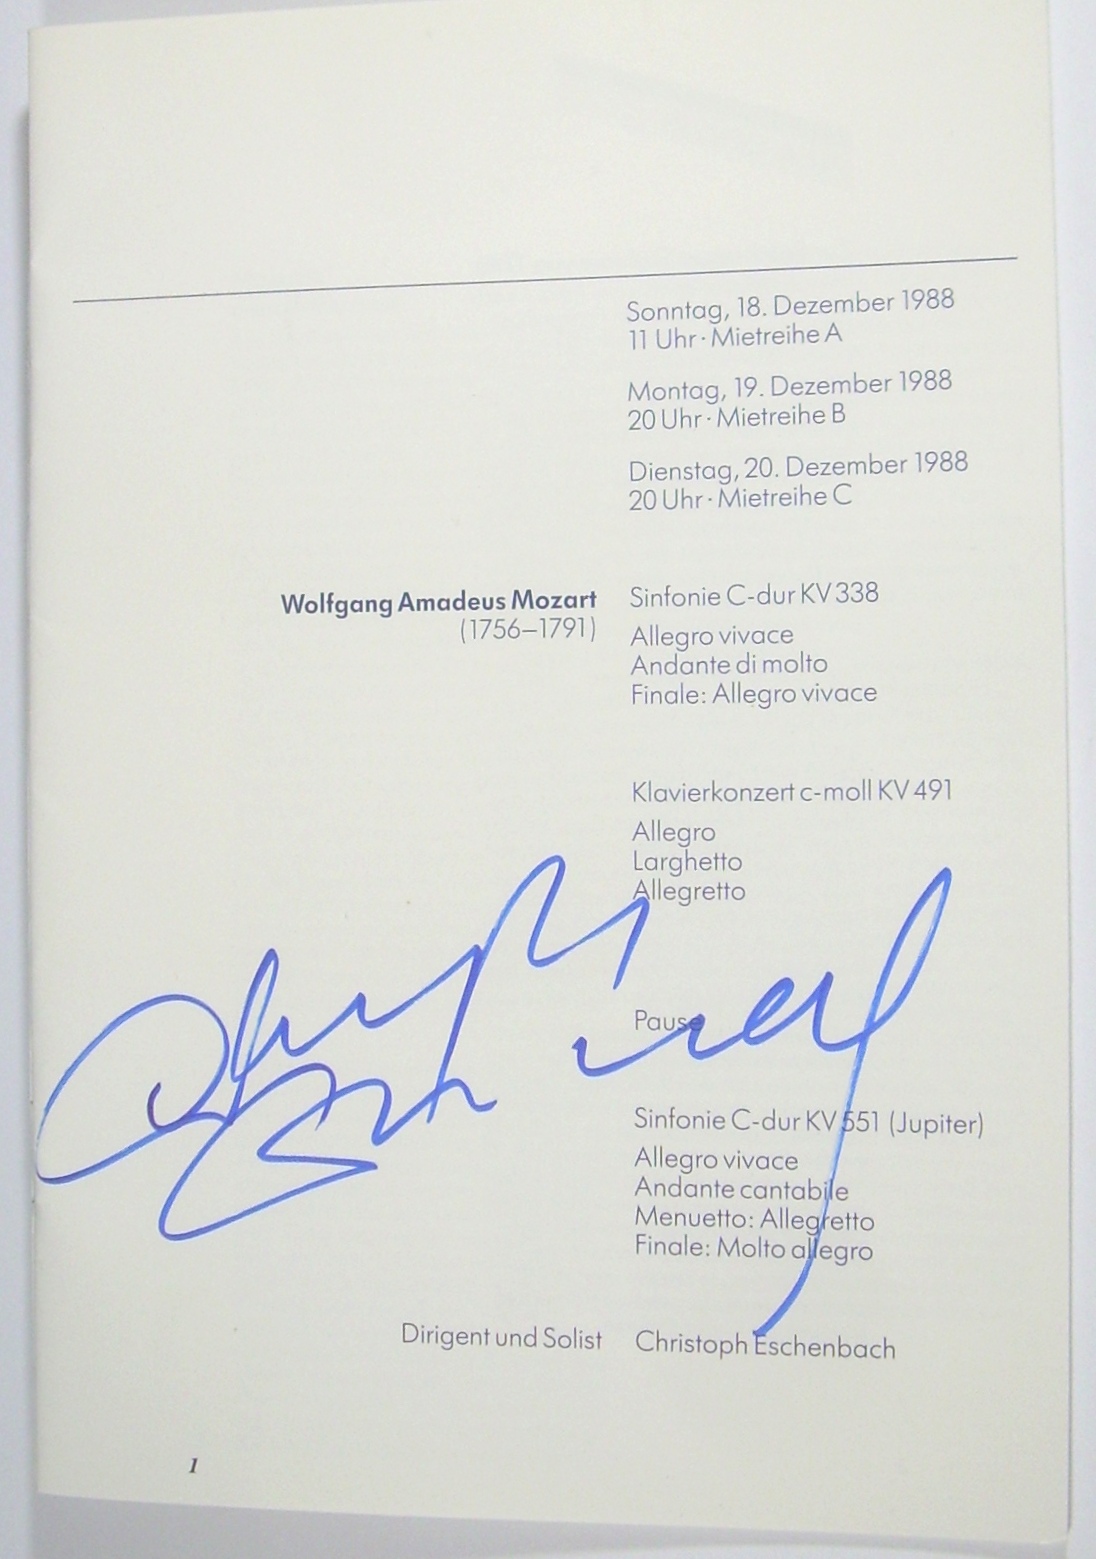 Sonntag, 18. Dezember 1988
11 Uhr · Mietreihe A
Montag, 19. Dezember 1988
20 Uhr · Mietreihe B
Dienstag, 20. Dezember 1988
20 Uhr · Mietreihe C
Wolfgang Amadeus Mozart
(1756–1791)
Sinfonie C-dur KV 338
Allegro vivace
Andante di molto
Finale: Allegro vivace
Klavierkonzert c-moll KV 491
Allegro
Larghetto
Allegretto
Pause
Sinfonie C-dur KV 551 (Jupiter)
Allegro vivace
Andante cantabile
Menuetto: Allegretto
Finale: Molto allegro
Dirigent und Solist Christoph Eschenbach
1